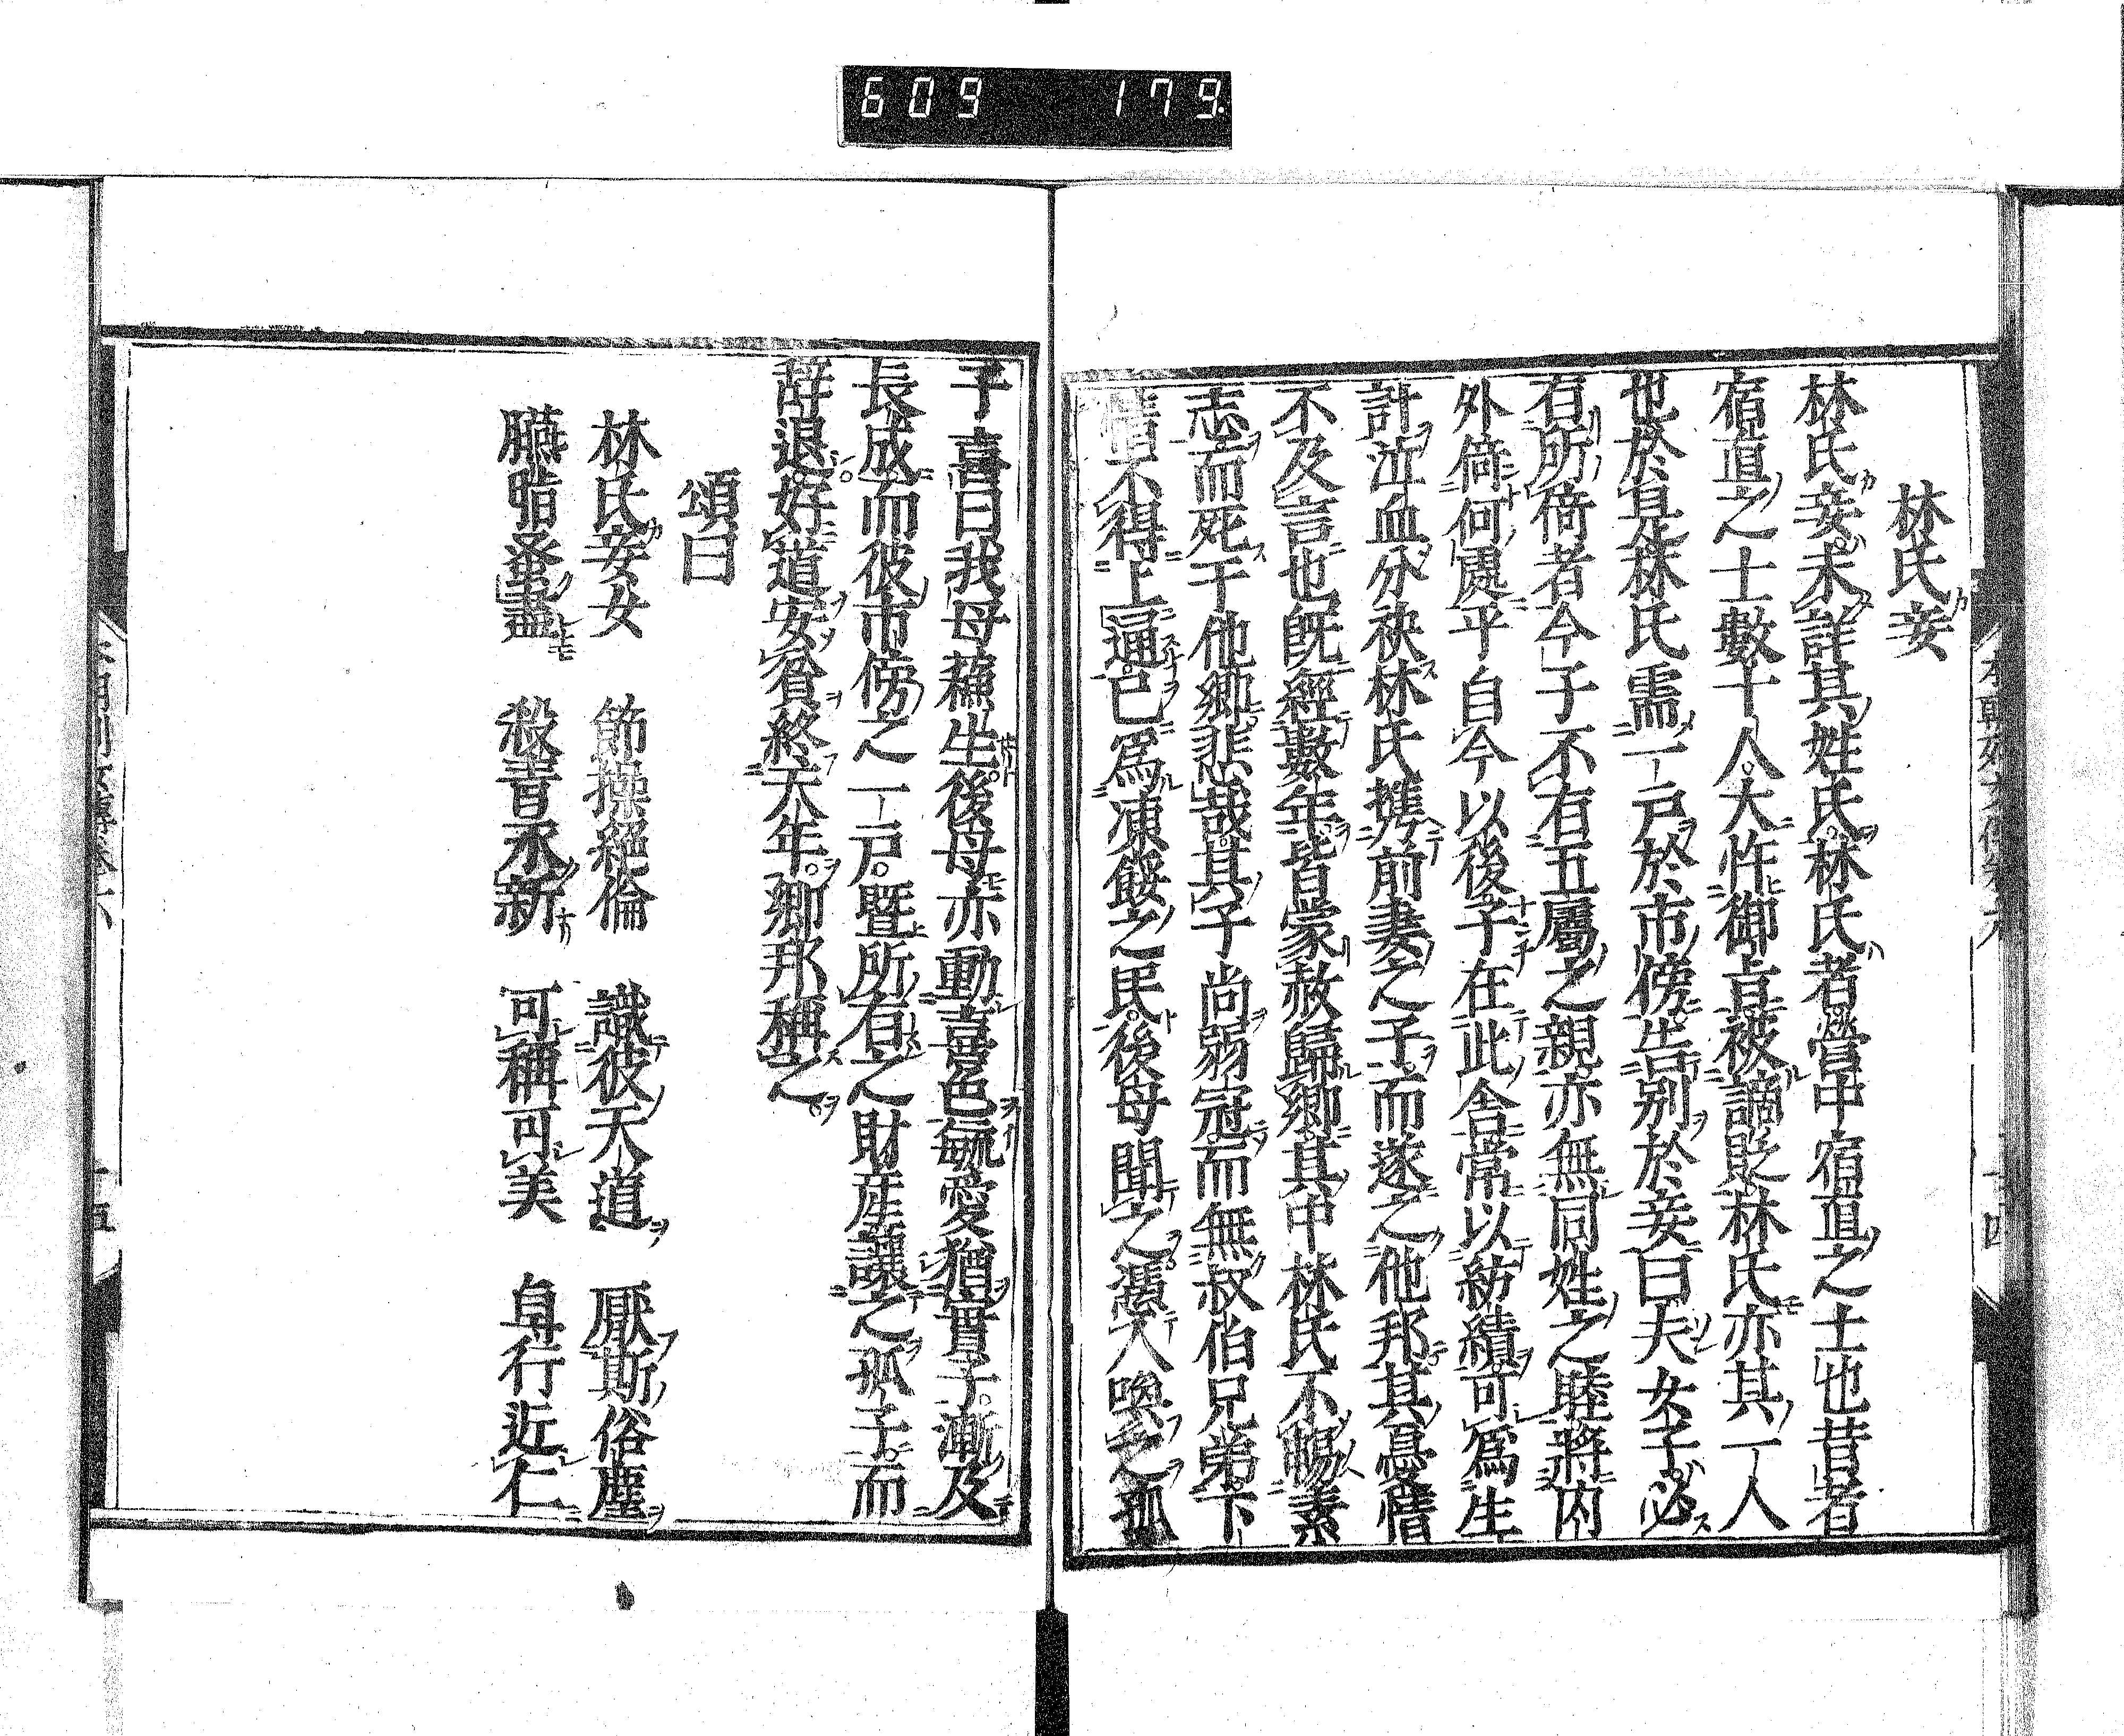 609 179.
林氏妾
林氏妾未詳其姓氏林氏者營中宿直之士也昔者
宿直之士數十人大忤御旨被謫貶林氏亦其一人
也於是林氏需一戸於市傍告別於妾曰夫女子必
有所倚者今子不有五屬之親亦無同姓之睦將内
外倚何處乎自今以後子在此舍常以紡績可爲生
計泣血分袂林氏携前妻之子而遂之他邦其憂情
不及言也既經數年皆蒙赦歸鄉其中林氏不暢素
志而死于他鄉悲哉其子尚弱冠而無叔伯兄弟下
情不得上逼已爲凍餒之民後母聞之潛入喚之孤
子喜曰我母蘓生後母亦動喜色毓愛猶實子漸及
長成而彼市傍之一戸暨所有之財産讓之孤子而
辞退好道安貧終天年鄉邦稱之
頌曰
林氏妾女 節操絕倫 識彼天道 厭斯俗塵
臙脂蚤盡 殺青永新 可稱可美 身行近仁
本朝列女傳卷六